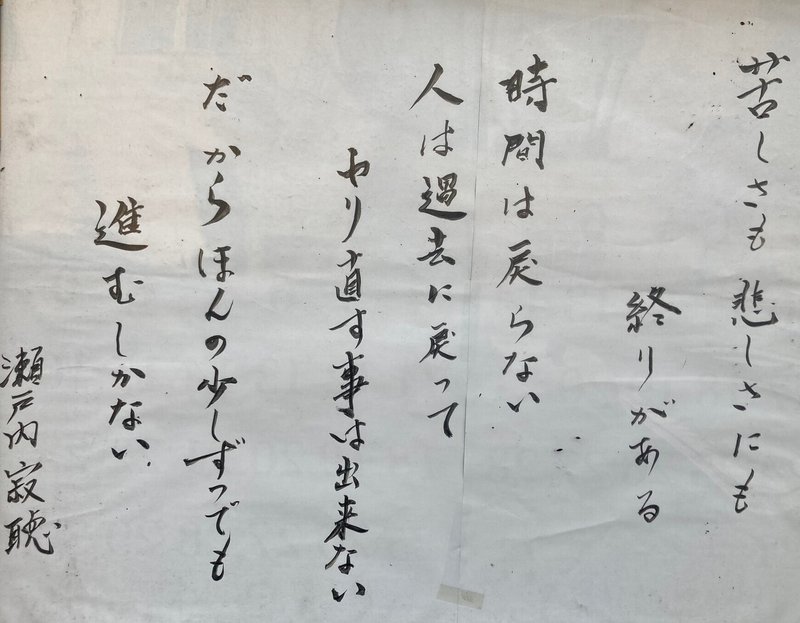 苦しさも悲しさにも
終りがある
時間は戻らない
人は過去に戻って
やり直す事は出来ない
だからほんの少しずつでも
進むしかない
瀬戸内寂聴